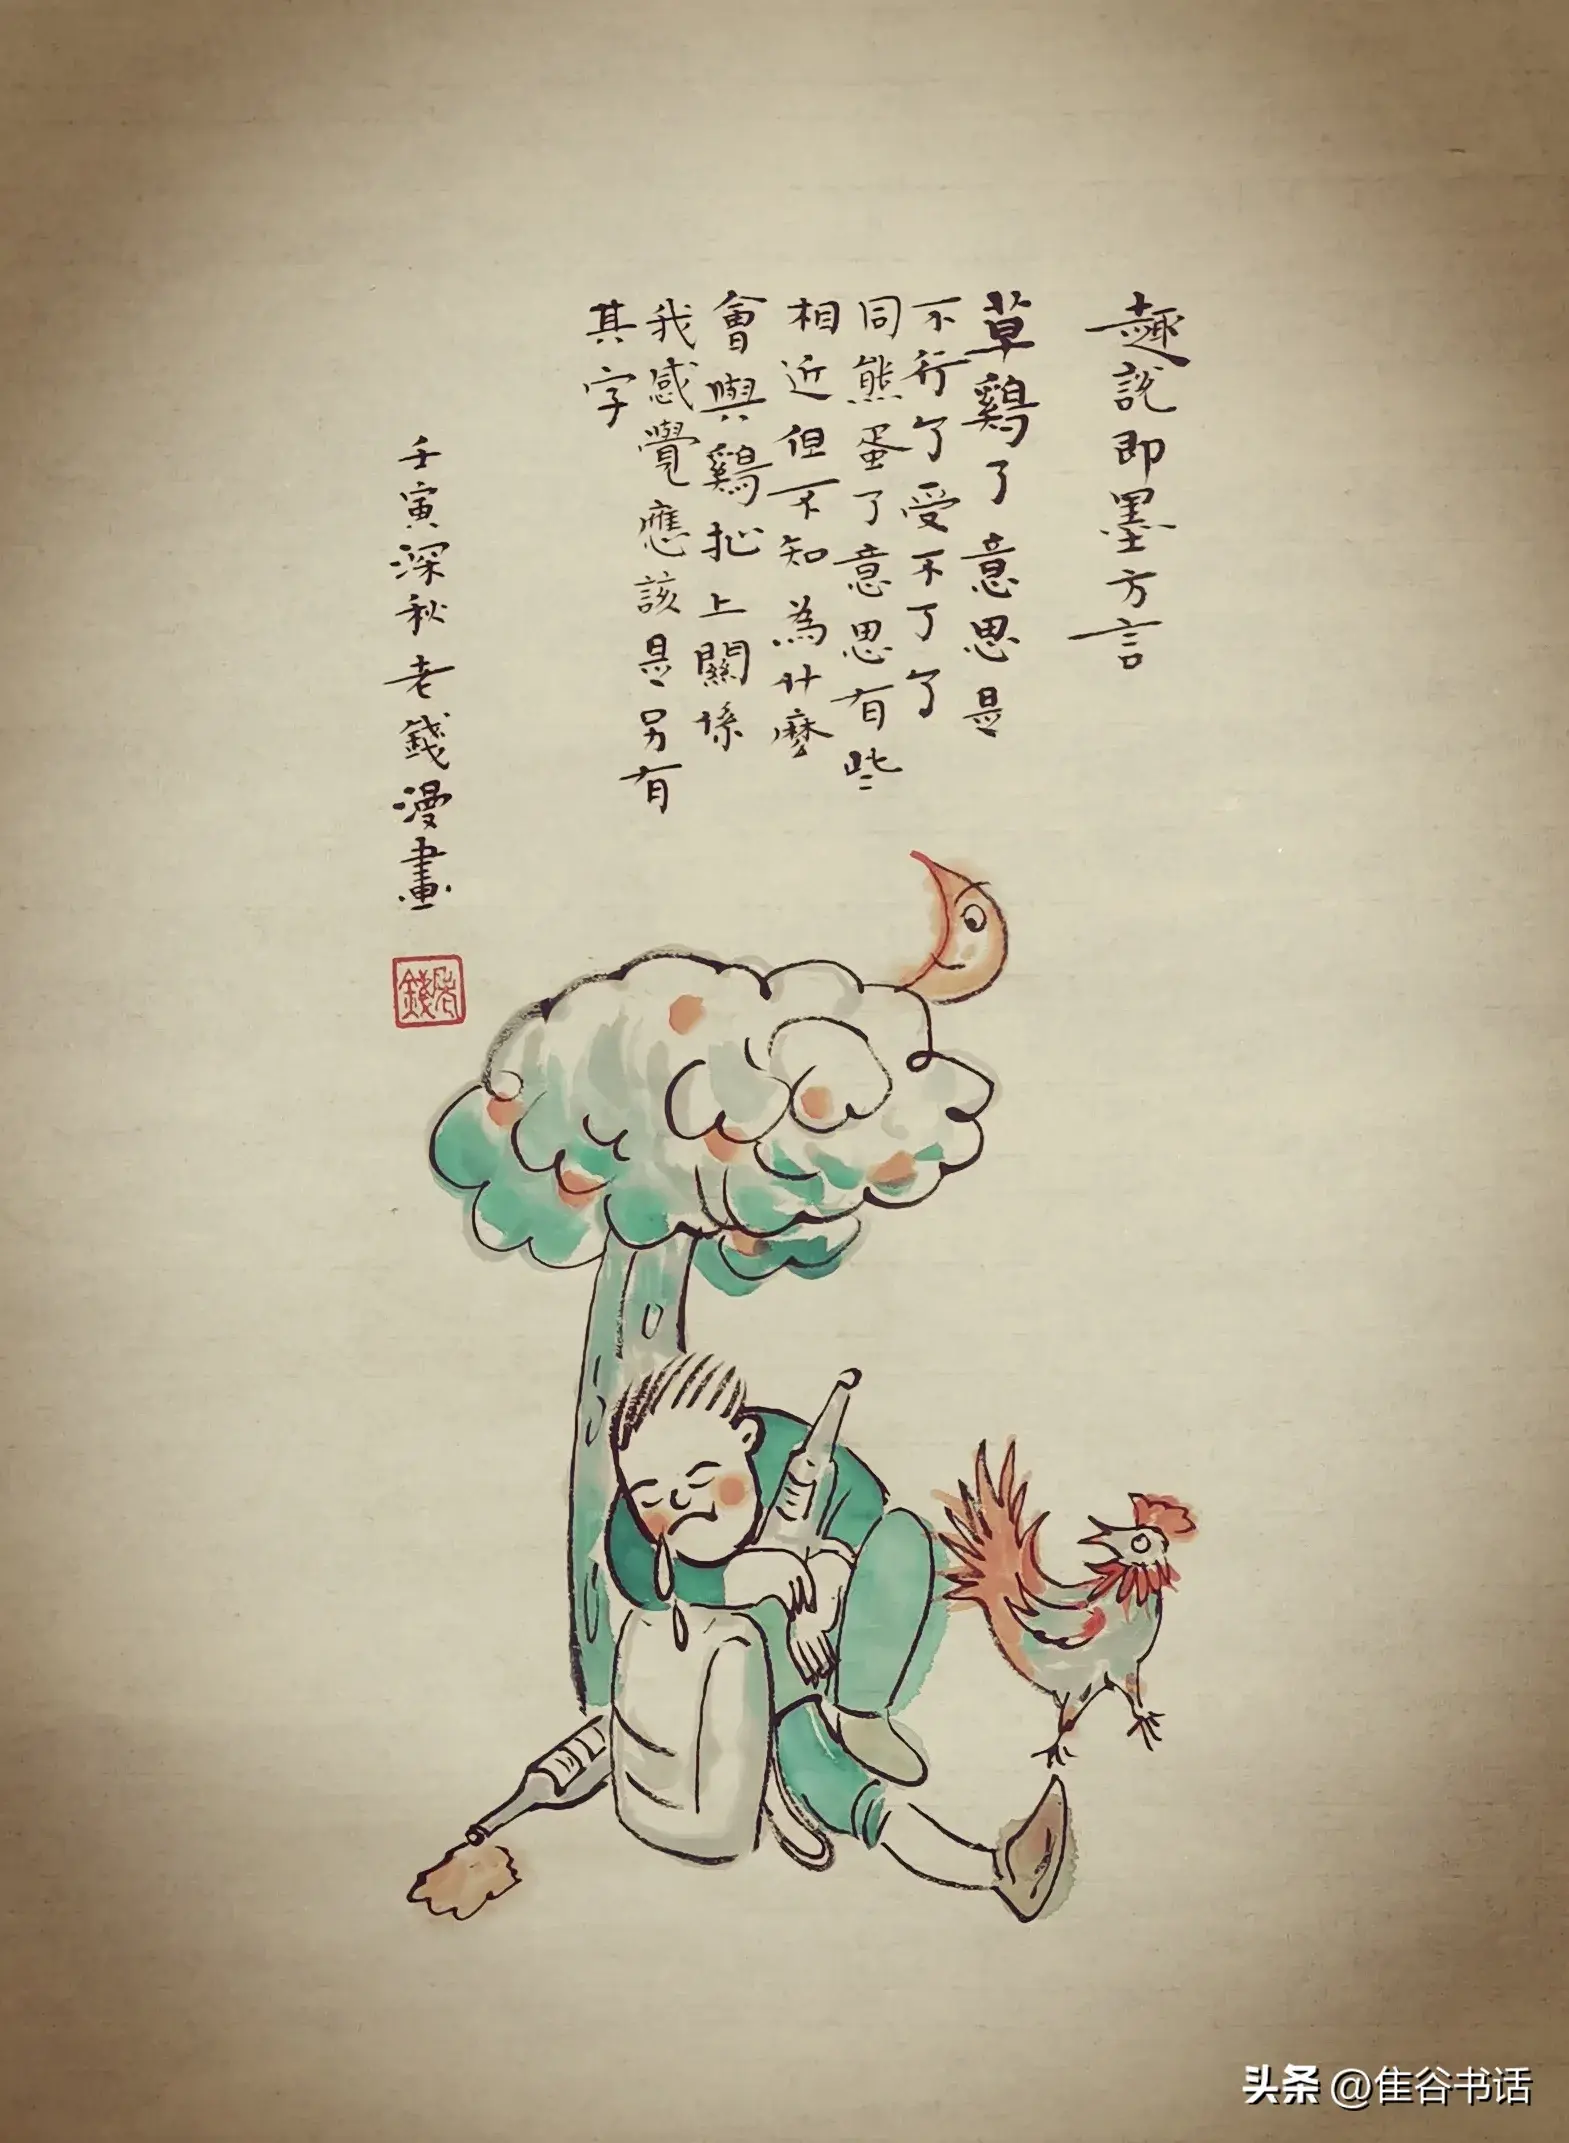 趣說即墨方言
草鷄了意思是
不行了受不了了
同熊蛋了意思有些
相近但不知為什麼
會與鷄扯上關係
我感覺應該是另有
其字
壬寅深秋老錢漫畫
老錢
头条 @隹谷书话